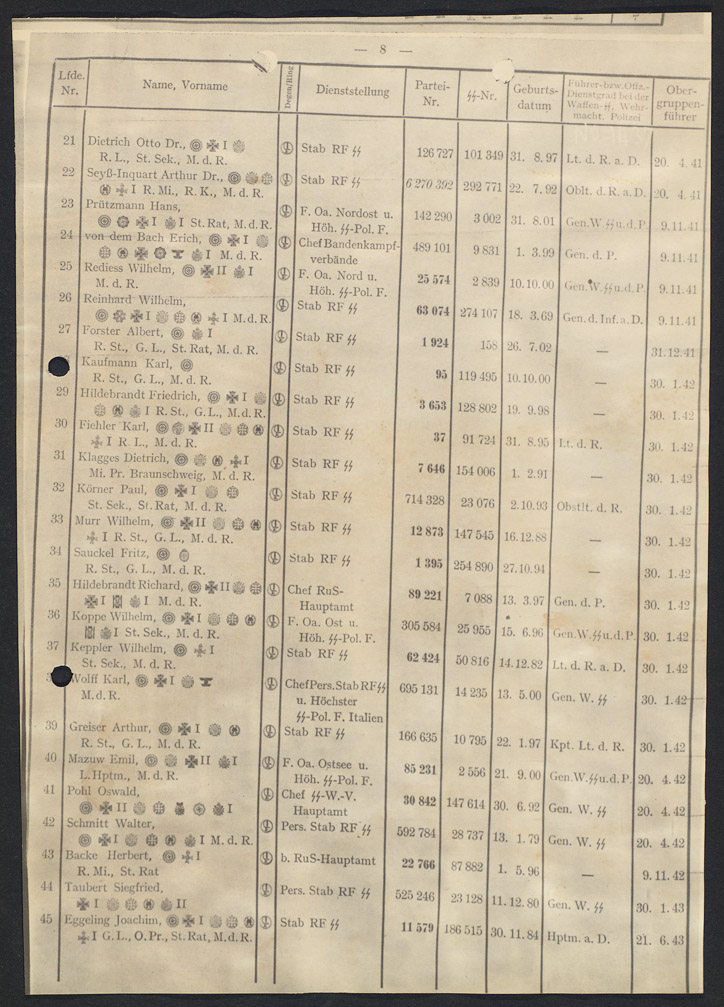 — 8 —
Lfde. Nr. Name, Vorname Degen/Ring Dienststellung Partei-Nr. ᛋᛋ-Nr. Geburts-datum Führer-bzw. Offz.-Dienstgrad bei der Waffen-ᛋᛋ, Wehrmacht, Polizei Ober-gruppen-führer
21 Dietrich Otto Dr., I Stab RF ᛋᛋ 126 727 101 349 31. 8.97 Lt. d. R. a. D. 20. 4.41
R. L., St. Sek., M. d. R.
22 Seyß-Inquart Arthur Dr., Stab RF ᛋᛋ 6 270 392 292 771 22. 7.92 Oblt. d. R. a. D. 20. 4.41
I R. Mi., R. K., M. d. R.
23 Prützmann Hans, F. Oa. Nordost u. 142 290 3 002 31. 8.01 Gen.W.ᛋᛋu.d.P. 9.11.41
I I St.Rat, M.d.R. Höh. ᛋᛋ-Pol. F.
24 von dem Bach Erich, I Chef Bandenkampf- 489 101 9 831 1. 3.99 Gen. d. P. 9.11.41
I M. d. R. verbände
25 Rediess Wilhelm, II I F. Oa. Nord u. 25 574 2 839 10.10.00 Gen.W.ᛋᛋu.d.P. 9.11.41
M. d. R. Höh. ᛋᛋ-Pol. F.
26 Reinhard Wilhelm, Stab RF ᛋᛋ 63 074 274 107 18. 3.69 Gen.d.Inf.a.D. 9.11.41
I I M.d.R.
27 Forster Albert, I Stab RF ᛋᛋ 1 924 158 26. 7.02 — 31.12.41
R. St., G. L., St. Rat, M. d. R.
Kaufmann Karl, Stab RF ᛋᛋ 95 119 495 10.10.00 — 30. 1.42
R. St., G. L., M. d. R.
29 Hildebrandt Friedrich, I Stab RF ᛋᛋ 3 653 128 802 19. 9.98 — 30. 1.42
I R. St., G.L., M.d.R.
30 Fiehler Karl, II Stab RF ᛋᛋ 37 91 724 31. 8.95 Lt. d. R. 30. 1.42
I R. L., M. d. R.
31 Klagges Dietrich, I Stab RF ᛋᛋ 7 646 154 006 1. 2.91 — 30. 1.42
Mi. Pr. Braunschweig, M. d. R.
32 Körner Paul, I Stab RF ᛋᛋ 714 328 23 076 2.10.93 Obstlt. d. R. 30. 1.42
St. Sek., St. Rat, M. d. R.
33 Murr Wilhelm, II Stab RF ᛋᛋ 12 873 147 545 16.12.88 — 30. 1.42
I R. St., G. L., M. d. R.
34 Sauckel Fritz, Stab RF ᛋᛋ 1 395 254 890 27.10.94 — 30. 1.42
R. St., G. L., M. d. R.
35 Hildebrandt Richard, II Chef RuS- 89 221 7 088 13. 3.97 Gen. d. P. 30. 1.42
I I M. d. R. Hauptamt
36 Koppe Wilhelm, I F. Oa. Ost u. 305 584 25 955 15. 6.96 Gen.W.ᛋᛋu.d.P. 30. 1.42
I St. Sek., M. d. R. Höh. ᛋᛋ-Pol. F.
37 Keppler Wilhelm, I Stab RF ᛋᛋ 62 424 50 816 14.12.82 Lt. d. R. a. D. 30. 1.42
St. Sek., M. d. R.
Wolff Karl, I Chef Pers. Stab RFᛋᛋ 695 131 14 235 13. 5.00 Gen. W. ᛋᛋ 30. 1.42
M.d.R. u. Höchster
ᛋᛋ-Pol. F. Italien
39 Greiser Arthur, I Stab RF ᛋᛋ 166 635 10 795 22. 1.97 Kpt. Lt. d. R. 30. 1.42
R. St., G. L., M. d. R.
40 Mazuw Emil, II I F. Oa. Ostsee u. 85 231 2 556 21. 9.00 Gen.W.ᛋᛋu.d.P. 20. 4.42
L.Hptm., M. d. R. Höh. ᛋᛋ-Pol. F.
41 Pohl Oswald, Chef ᛋᛋ-W.-V. 30 842 147 614 30. 6.92 Gen. W. ᛋᛋ 20. 4.42
II I Hauptamt
42 Schmitt Walter, Pers. Stab RF ᛋᛋ 592 784 28 737 13. 1.79 Gen. W. ᛋᛋ 20. 4.42
I I M. d. R.
43 Backe Herbert, I b. RuS-Hauptamt 22 766 87 882 1. 5.96 — 9.11.42
R. Mi., St. Rat
44 Taubert Siegfried, Pers. Stab RF ᛋᛋ 525 246 23 128 11.12.80 Gen. W. ᛋᛋ 30. 1.43
I II
45 Eggeling Joachim, I Stab RF ᛋᛋ 11 579 186 515 30.11.84 Hptm. a. D. 21. 6.43
I G. L., O. Pr., St. Rat, M.d.R.